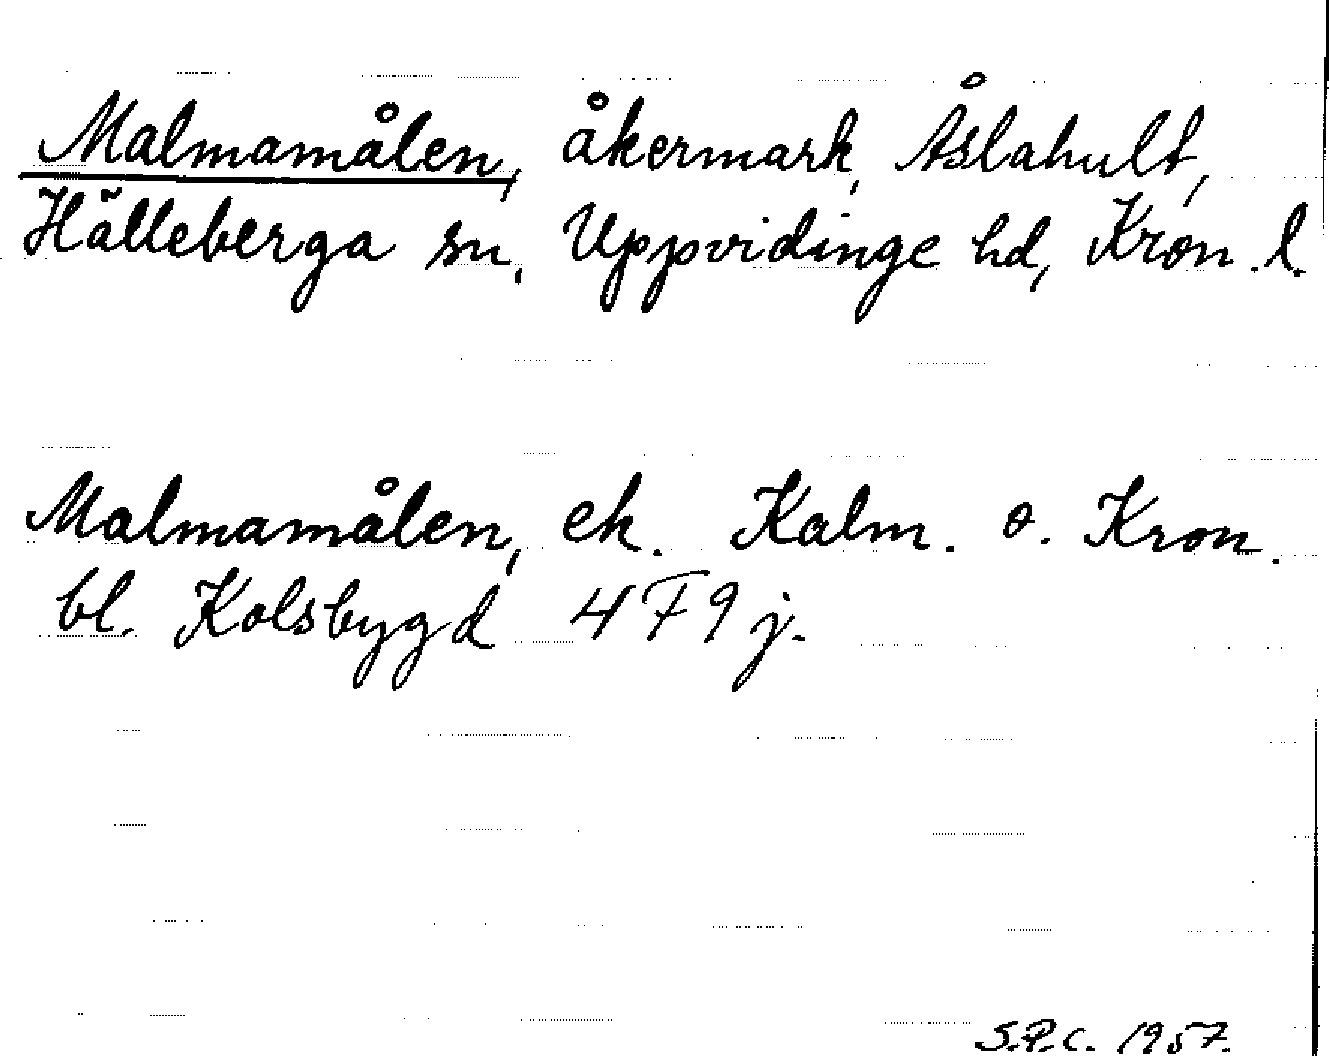 Malmamålen, åkermark, Åslahult,
Hälleberga sn, Uppvidinge hd, Kron. l.
Malmamålen, ek. Kalm. o. Kron.
bl. Kolsbygd 4F9j.
S.P.C. 1957.